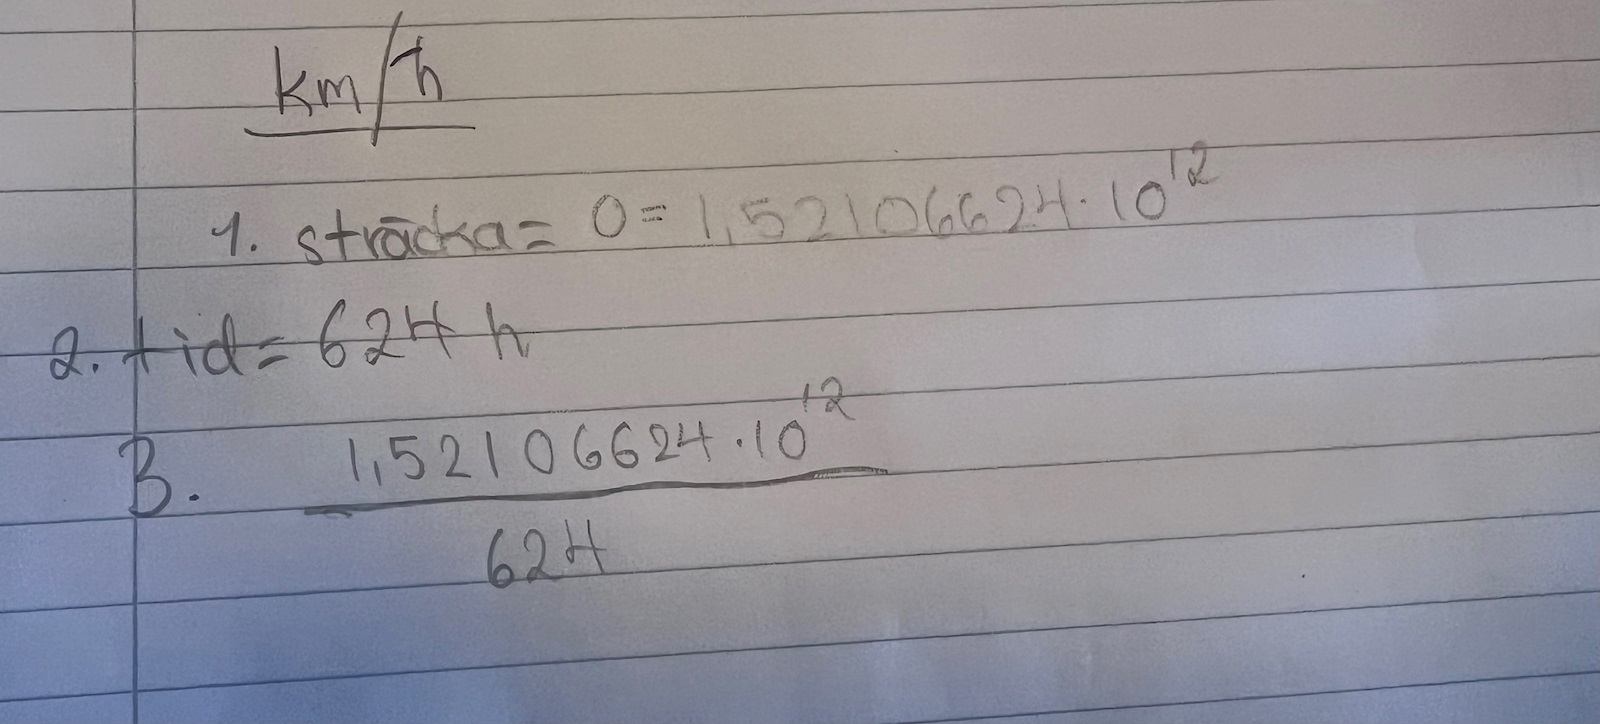 km/h
1. sträcka = O = 1,52106624 · 10¹²
2. tid = 624 h
3. 1,52106624 · 10¹²
624